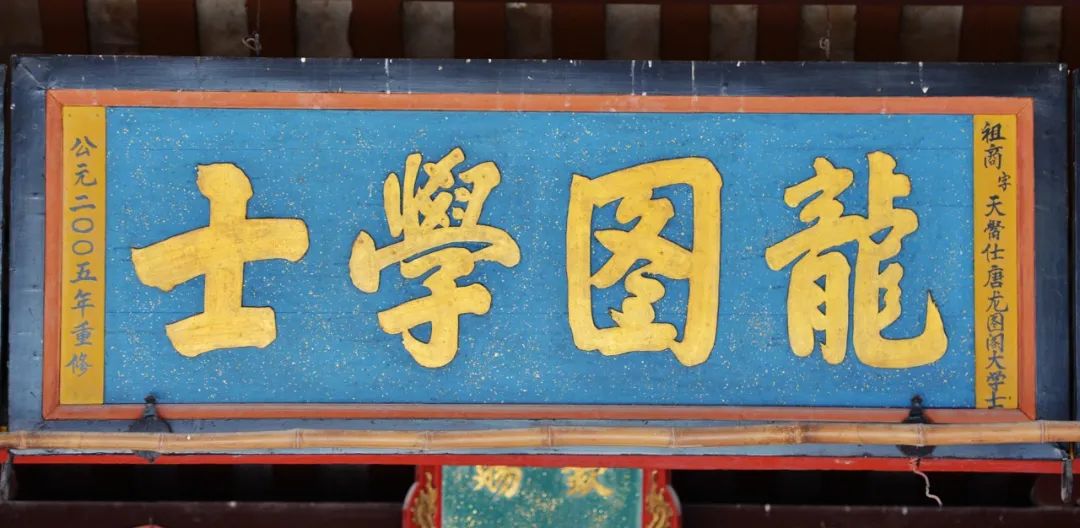 祖商字天仕唐龙图阁大学士
龍圗學士
公元二〇〇五年重修
敕賜